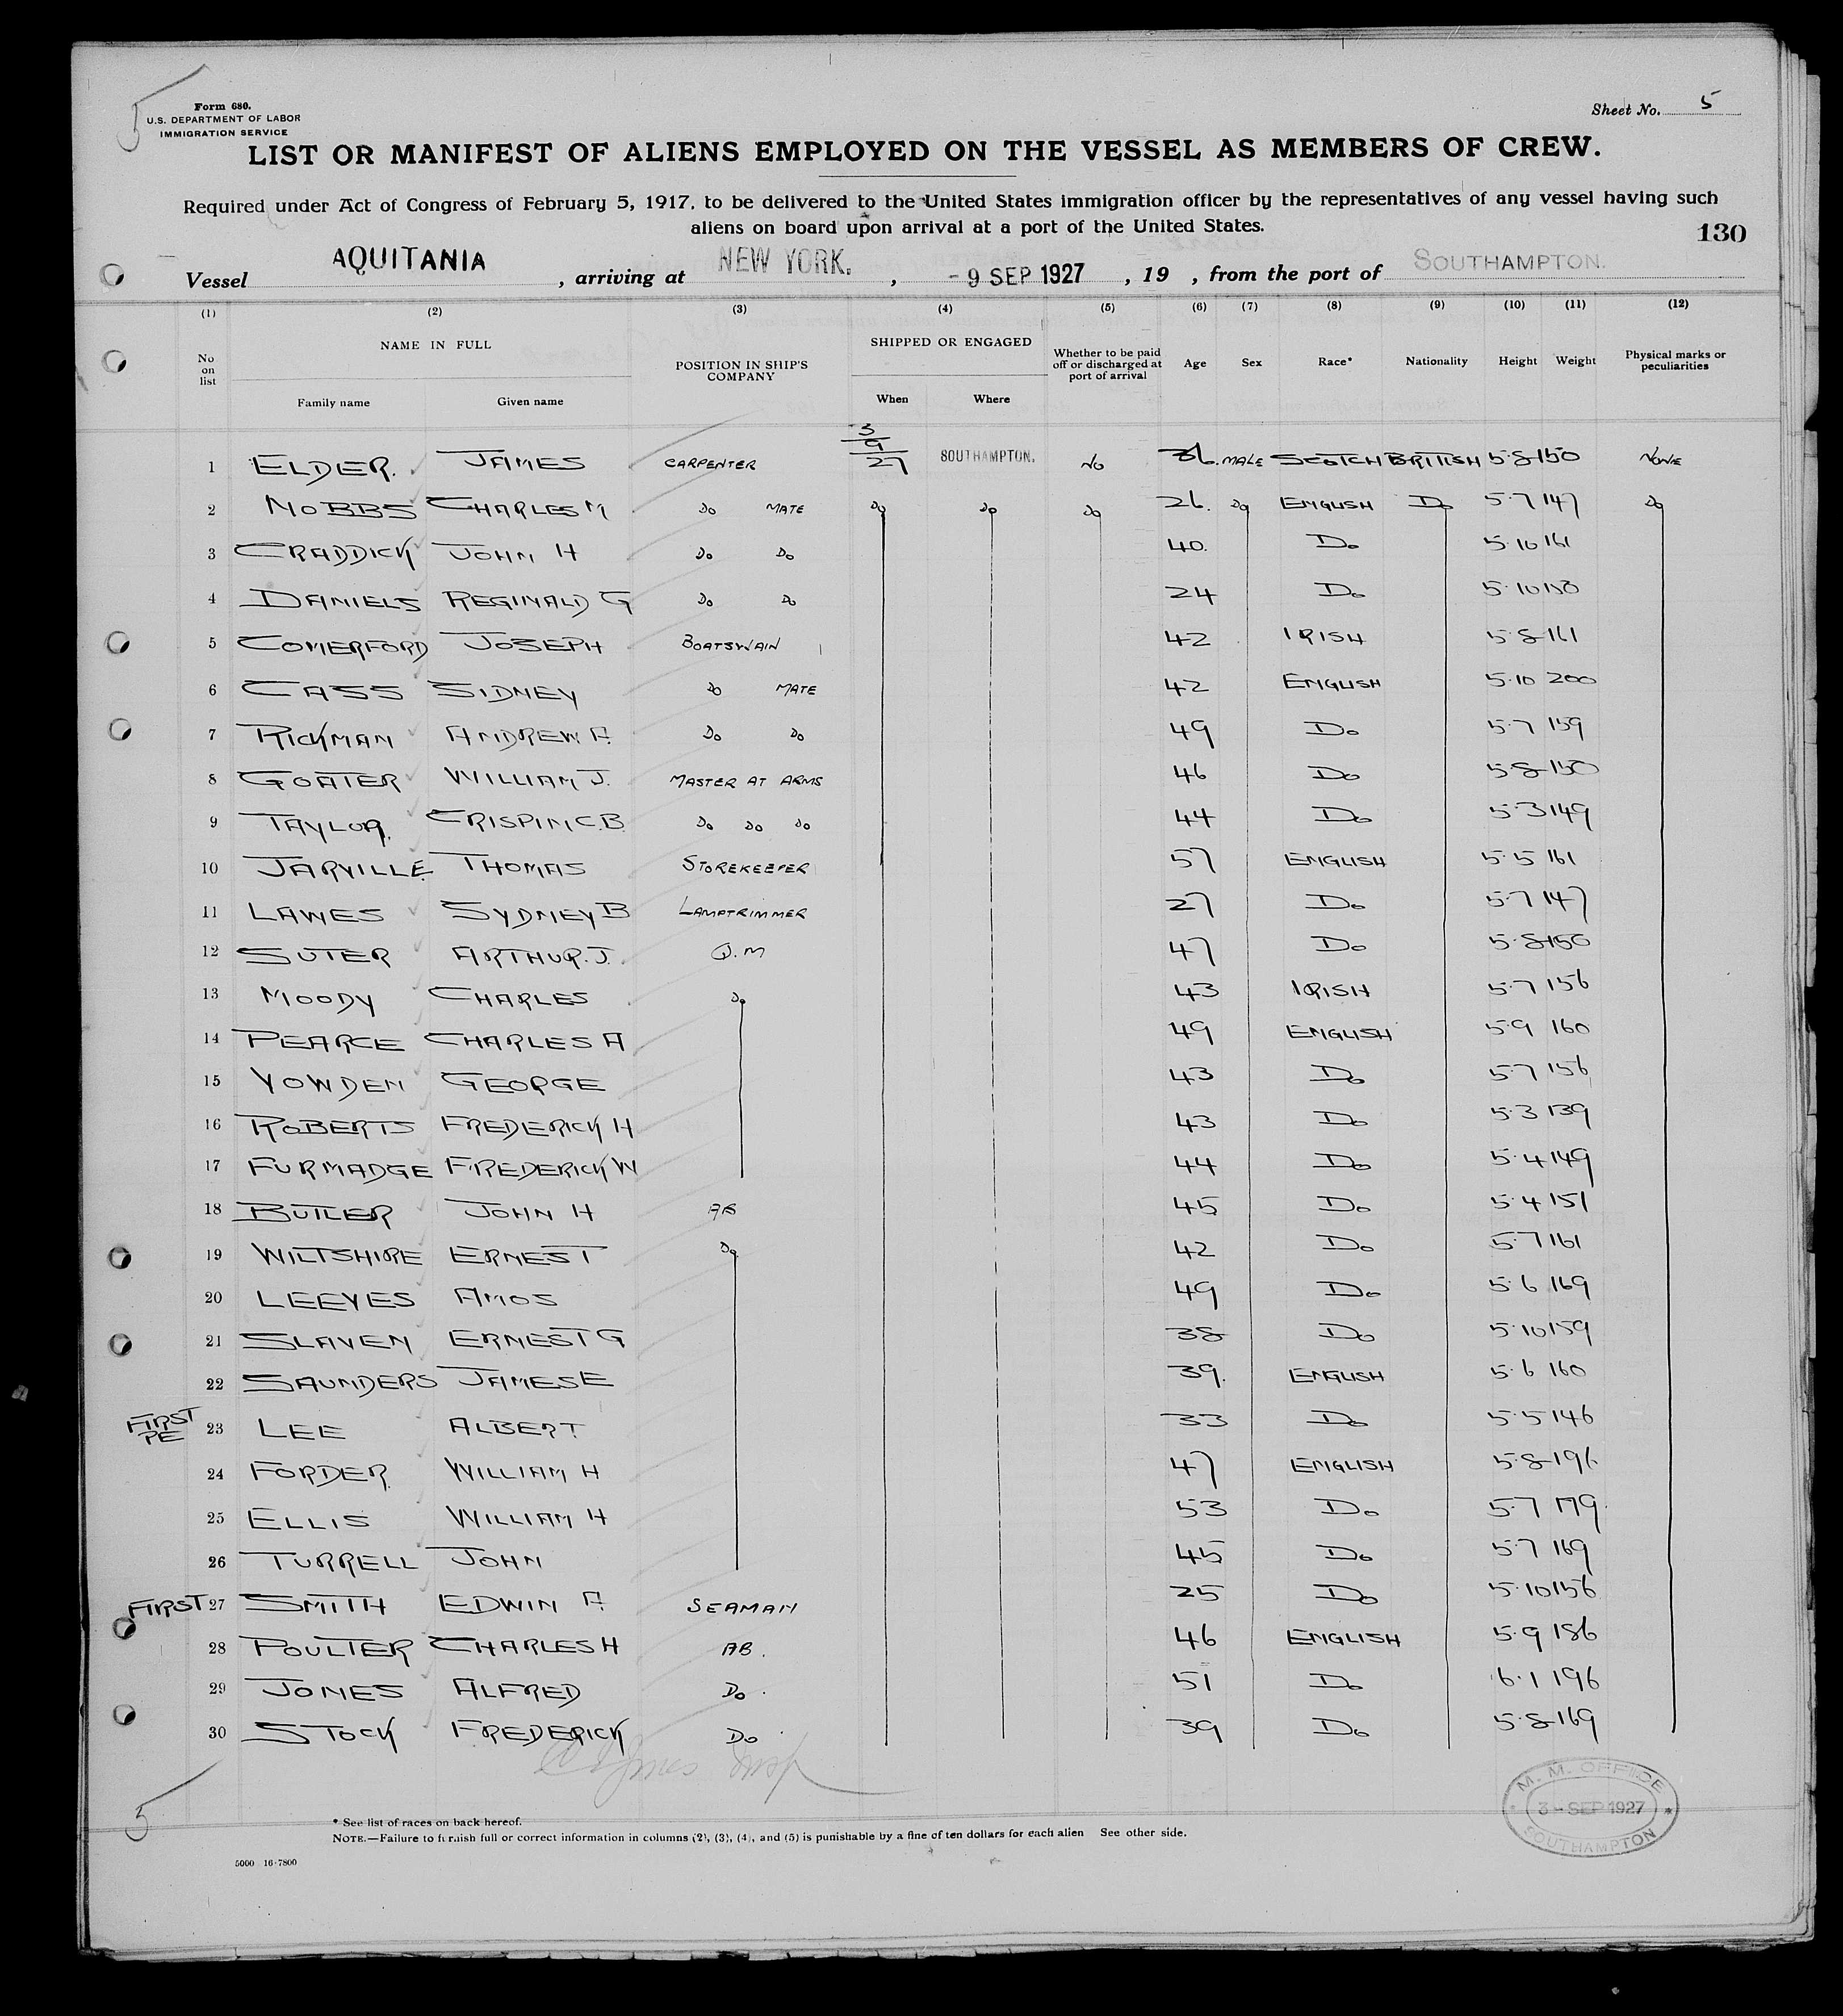 5
Form 680.
U.S. DEPARTMENT OF LABOR
IMMIGRATION SERVICE
Sheet No. 5
LIST OR MANIFEST OF ALIENS EMPLOYED ON THE VESSEL AS MEMBERS OF CREW.
Required under Act of Congress of February 5, 1917, to be delivered to the United States immigration officer by the representatives of any vessel having such
aliens on board upon arrival at a port of the United States.
130
Vessel AQUITANIA, arriving at NEW YORK., - 9 SEP 1927, 19 , from the port of SOUTHAMPTON.
(1) (2) (3) (4) (5) (6) (7) (8) (9) (10) (11) (12)
No on list NAME IN FULL Family name Given name POSITION IN SHIP'S COMPANY SHIPPED OR ENGAGED When Where Whether to be paid off or discharged at port of arrival Age Sex Race* Nationality Height Weight Physical marks or peculiarities
1 ELDER. JAMES CARPENTER 3/9/27 SOUTHAMPTON. NO 36. MALE SCOTCH BRITISH 5-8 150 NONE
2 NOBBS CHARLES M DO MATE DO DO DO 26. DO ENGLISH DO 5-7 147 DO
3 CRADDICK JOHN H DO DO 40. DO 5-10 161
4 DANIELS REGINALD G DO DO 24 DO 5-10 150
5 COMERFORD JOSEPH BOATSWAIN 42 IRISH 5-8 161
6 CASS SIDNEY DO MATE 42 ENGLISH 5-10 200
7 RICKMAN ANDREW A. DO DO 49 DO 5-7 159
8 GOATER WILLIAM J. MASTER AT ARMS 46 DO 5-8 150
9 TAYLOR. CRISPIN C.B. DO DO DO 44 DO 5-3 149
10 JARVILLE THOMAS STOREKEEPER 57 ENGLISH 5-5 161
11 LAWES SYDNEY B LAMPTRIMMER 27 DO 5-7 147
12 SUTER ARTHUR. J. Q.M 47 DO 5-8 150
13 MOODY CHARLES DO 43 IRISH 5-7 156
14 PEARCE CHARLES A 49 ENGLISH 5-9 160
15 VOWDEN GEORGE 43 DO 5-7 156
16 ROBERTS FREDERICK H 43 DO 5-3 139
17 FURMADGE FREDERICK W 44 DO 5-4 149
18 BUTLER JOHN H AB 45 DO 5-4 151
19 WILTSHIRE ERNEST DO 42 DO 5-7 161
20 LEEVES AMOS 49 DO 5-6 169
21 SLAVEN ERNEST G 38 DO 5-10 159
22 SAUNDERS JAMES E 39. ENGLISH 5-6 160
FIRST PE 23 LEE ALBERT 33 DO 5-5 146
24 FORDER WILLIAM H 47 ENGLISH 5-8 196
25 ELLIS WILLIAM H 53 DO 5-7 179
26 TURRELL JOHN 45 DO 5-7 169
FIRST 27 SMITH EDWIN A. SEAMAN 25 DO 5-10 156
28 POULTER CHARLES H AB. 46 ENGLISH 5-9 186
29 JONES ALFRED DO. 51 DO 6-1 196
30 STOCK FREDERICK DO 39 DO 5-8 169
5
M. M. OFFICE
3 - SEP 1927
SOUTHAMPTON
* See list of races on back hereof.
NOTE.—Failure to furnish full or correct information in columns (2), (3), (4), and (5) is punishable by a fine of ten dollars for each alien See other side.
5000 16-7800